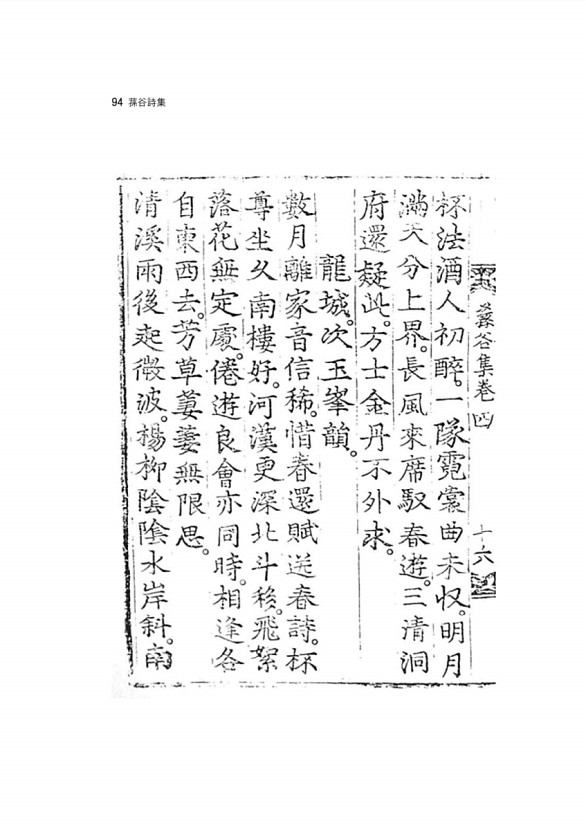 94 蓀谷詩集
蓀谷集卷四 十六
杯法酒人初醉。一隊霓裳曲未収。明月
滿天分上界。長風來席馭春遊。三清洞
府還疑此。方士金丹不外求。
龍城。次玉峯韻。
數月離家音信稀。惜春還賦送春詩。杯
尊坐久南樓好。河漢更深北斗移。飛絮
落花無定處。倦遊良會亦同時。相逢各
自東西去。芳草萋萋無限思。
清溪雨後起微波。楊柳陰陰水岸斜。南